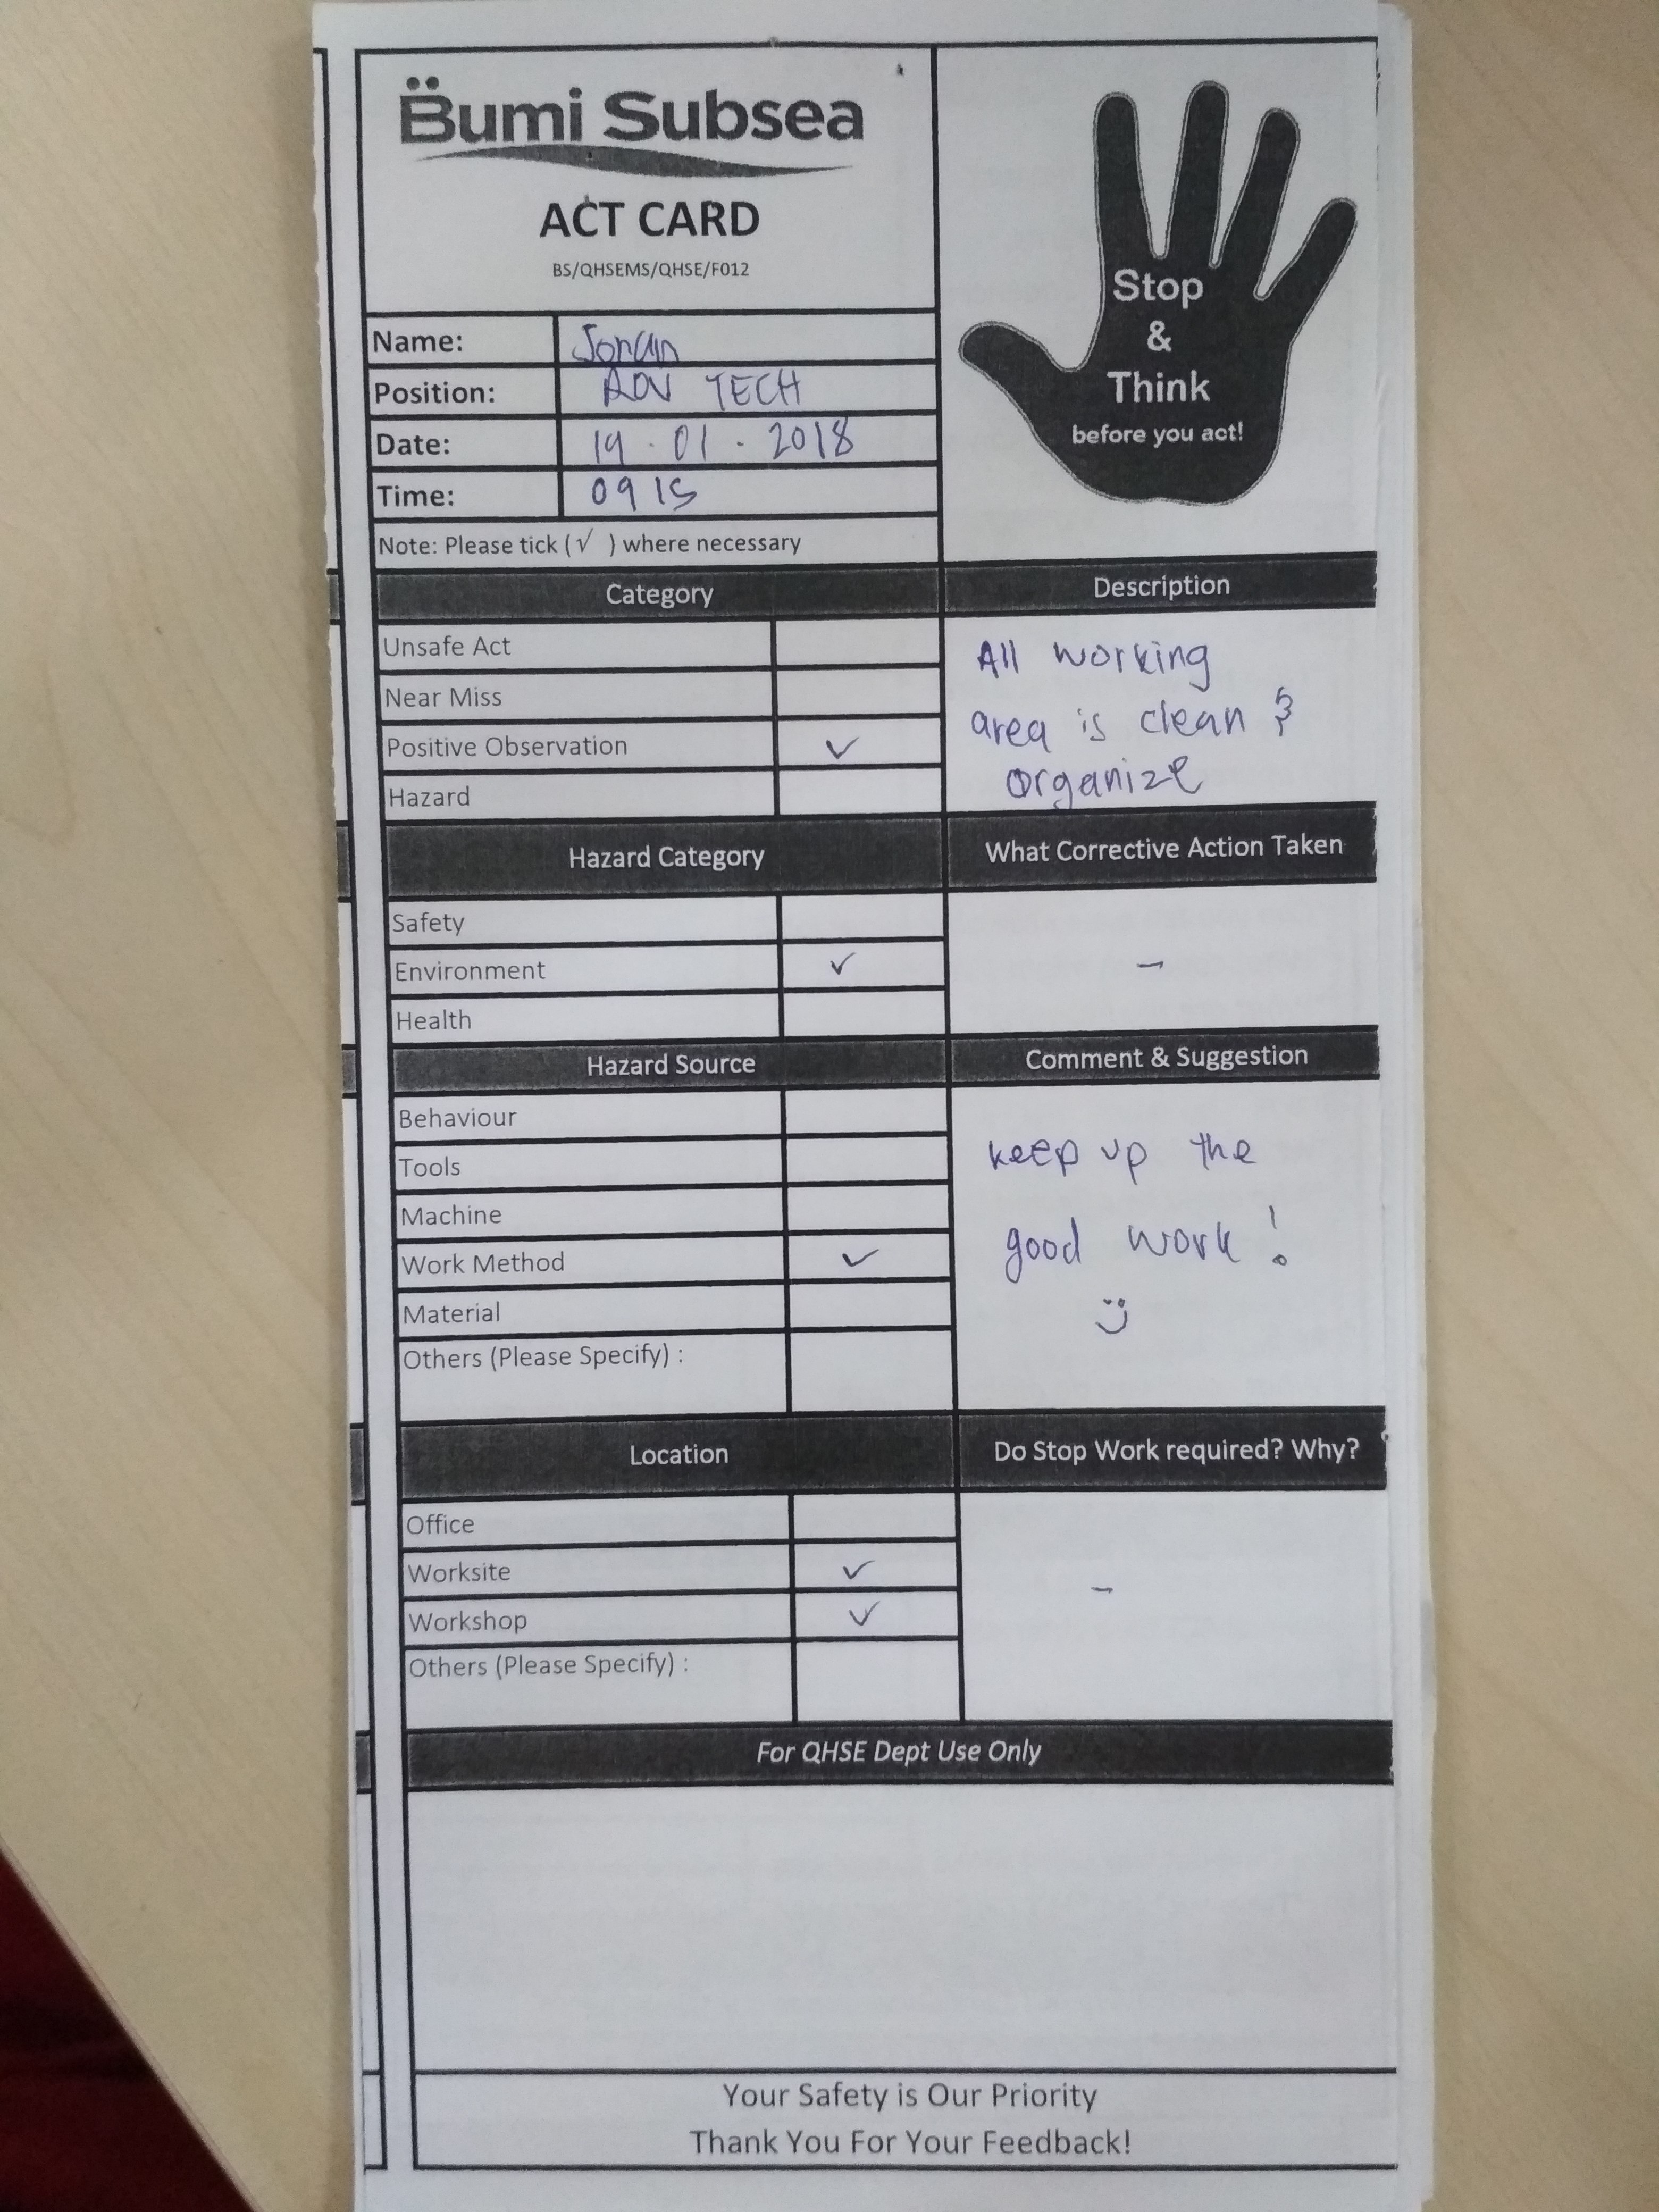 Bumi Subsea
ACT CARD
BS/QHSEMS/QHSE/F012
Stop
&
Think
before you act!
Name:
Position: ROV TECH
Date: 19.01.2018
Time: 0915
Note: Please tick (√ ) where necessary
Category
Unsafe Act
Near Miss
Positive Observation ✓
Hazard
Description
All working
area is clean &
organize
Hazard Category
Safety
Environment ✓
Health
What Corrective Action Taken
-
Hazard Source
Behaviour
Tools
Machine
Work Method ✓
Material
Others (Please Specify) :
Comment & Suggestion
keep up the
good work!
:)
Location
Office
Worksite ✓
Workshop ✓
Others (Please Specify) :
Do Stop Work required? Why?
-
For QHSE Dept Use Only
Your Safety is Our Priority
Thank You For Your Feedback!